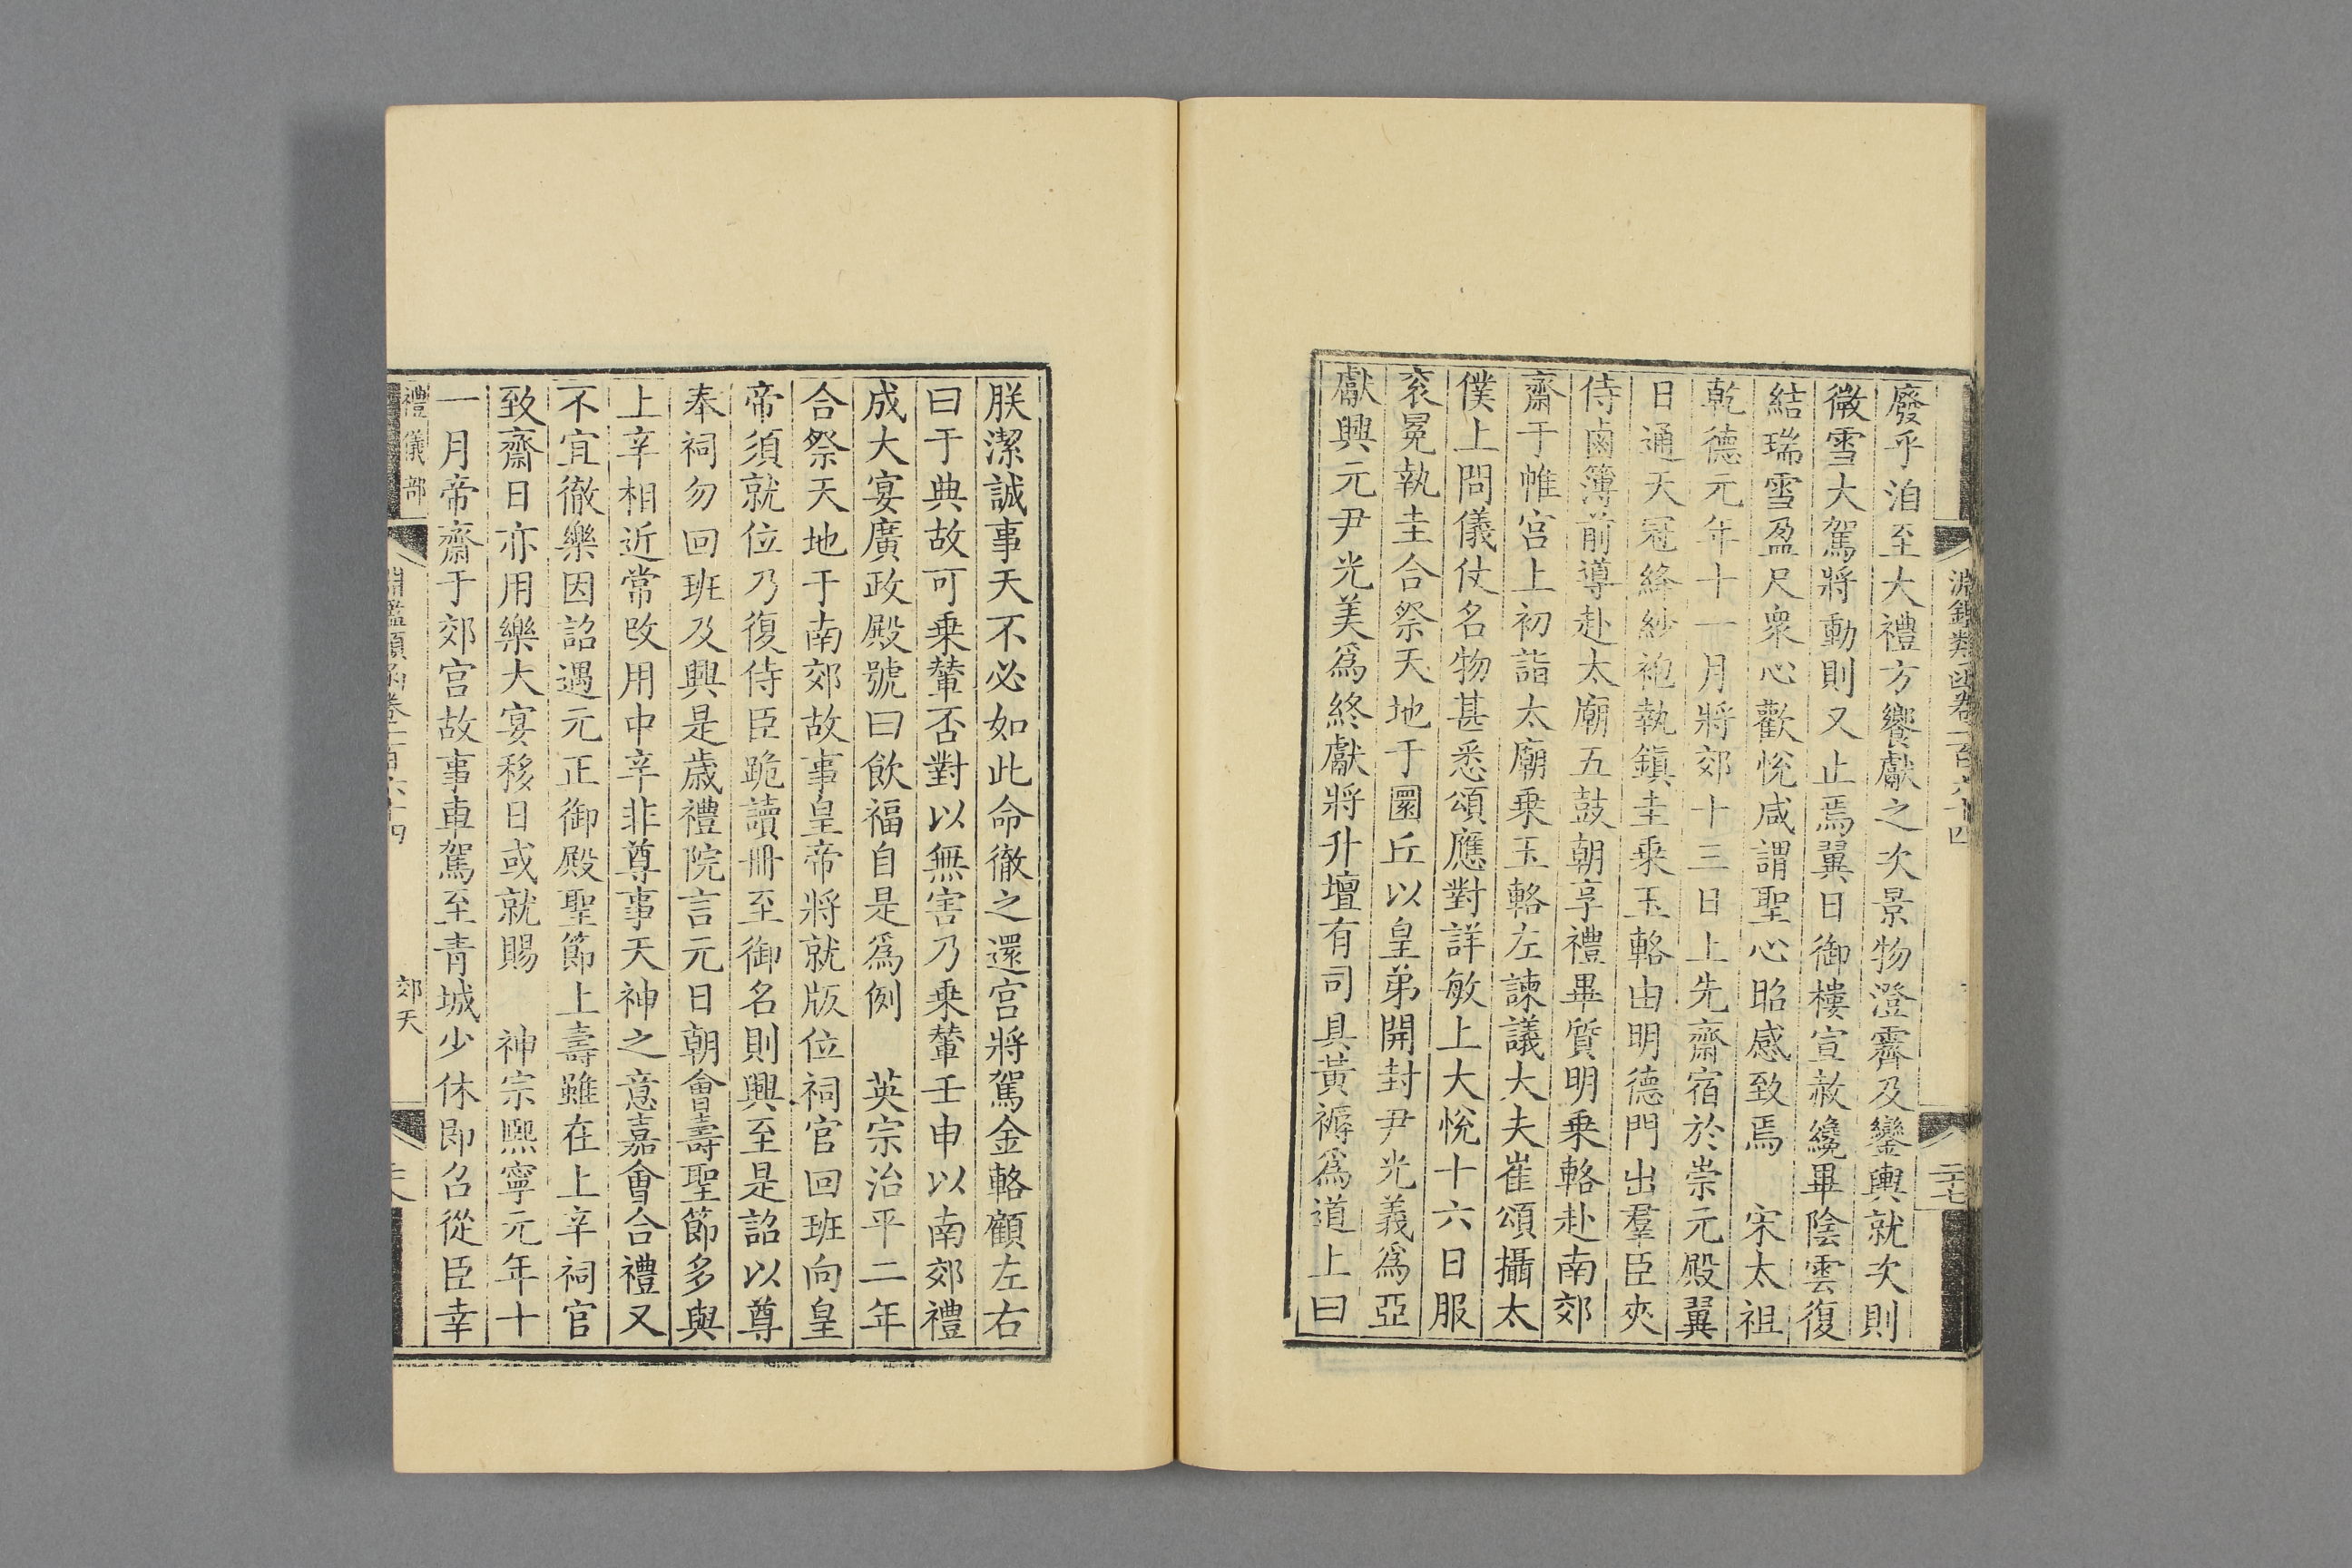 淵鑑類函卷一百六十四
二十七
廢乎洎至大禮方饗獻之次景物澄霽及鑾輿就次則
微雪大駕將動則又止焉翼日御樓宣赦纔畢陰雲復
結瑞雪盈尺衆心歡悅咸謂聖心昭感致焉　宋太祖
乾德元年十一月將郊十三日上先齋宿於崇元殿翼
日通天冠絳紗袍執鎮圭乗玉輅由明德門出羣臣夾
侍鹵簿前導赴太廟五鼓朝享禮畢質明乗輅赴南郊
齋于帷宮上初詣太廟乗玉輅左諫議大夫崔頌攝太
僕上問儀仗名物甚悉頌應對詳敏上大悅十六日服
衮冕執圭合祭天地于圜丘以皇弟開封尹光義爲亞
獻興元尹光美爲終獻將升壇有司具黃褥爲道上曰
朕潔誠事天不必如此命徹之還宮將駕金輅顧左右
曰于典故可乗輦否對以無害乃乗輦壬申以南郊禮
成大宴廣政殿號曰飲福自是爲例　英宗治平二年
合祭天地于南郊故事皇帝將就版位祠官回班向皇
帝須就位乃復侍臣跪讀冊至御名則興至是詔以尊
奉祠勿回班及興是歲禮院言元日朝會壽聖節多與
上辛相近常改用中辛非尊事天神之意嘉會合禮又
不宜徹樂因詔遇元正御殿聖節上壽雖在上辛祠官
致齋日亦用樂大宴移日或就賜　神宗熙寧元年十
一月帝齋于郊宮故事車駕至青城少休即召從臣幸
禮儀部
淵鑑類函卷一百六十四
郊天